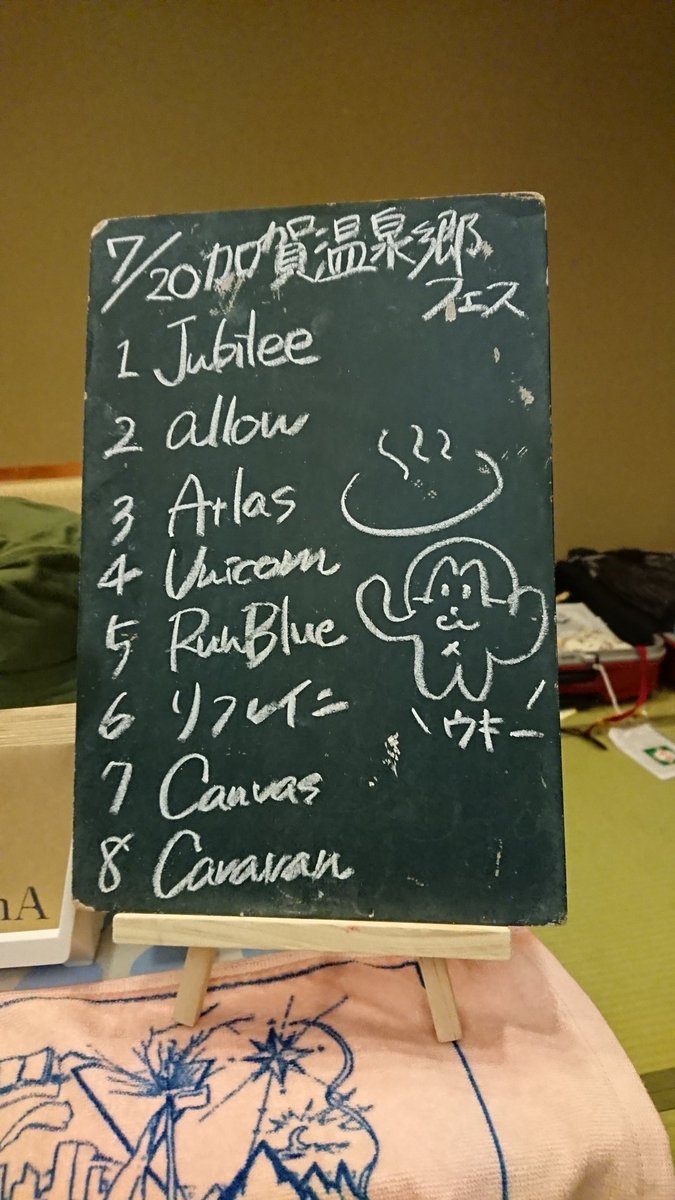 7/20加賀温泉郷
フェス
1 Jubilee
2 allow
3 Atlas
4 Unicorn
5 RunBlue
6 リフレイン
7 Canvas
8 Caravan
\ウキー/
nA